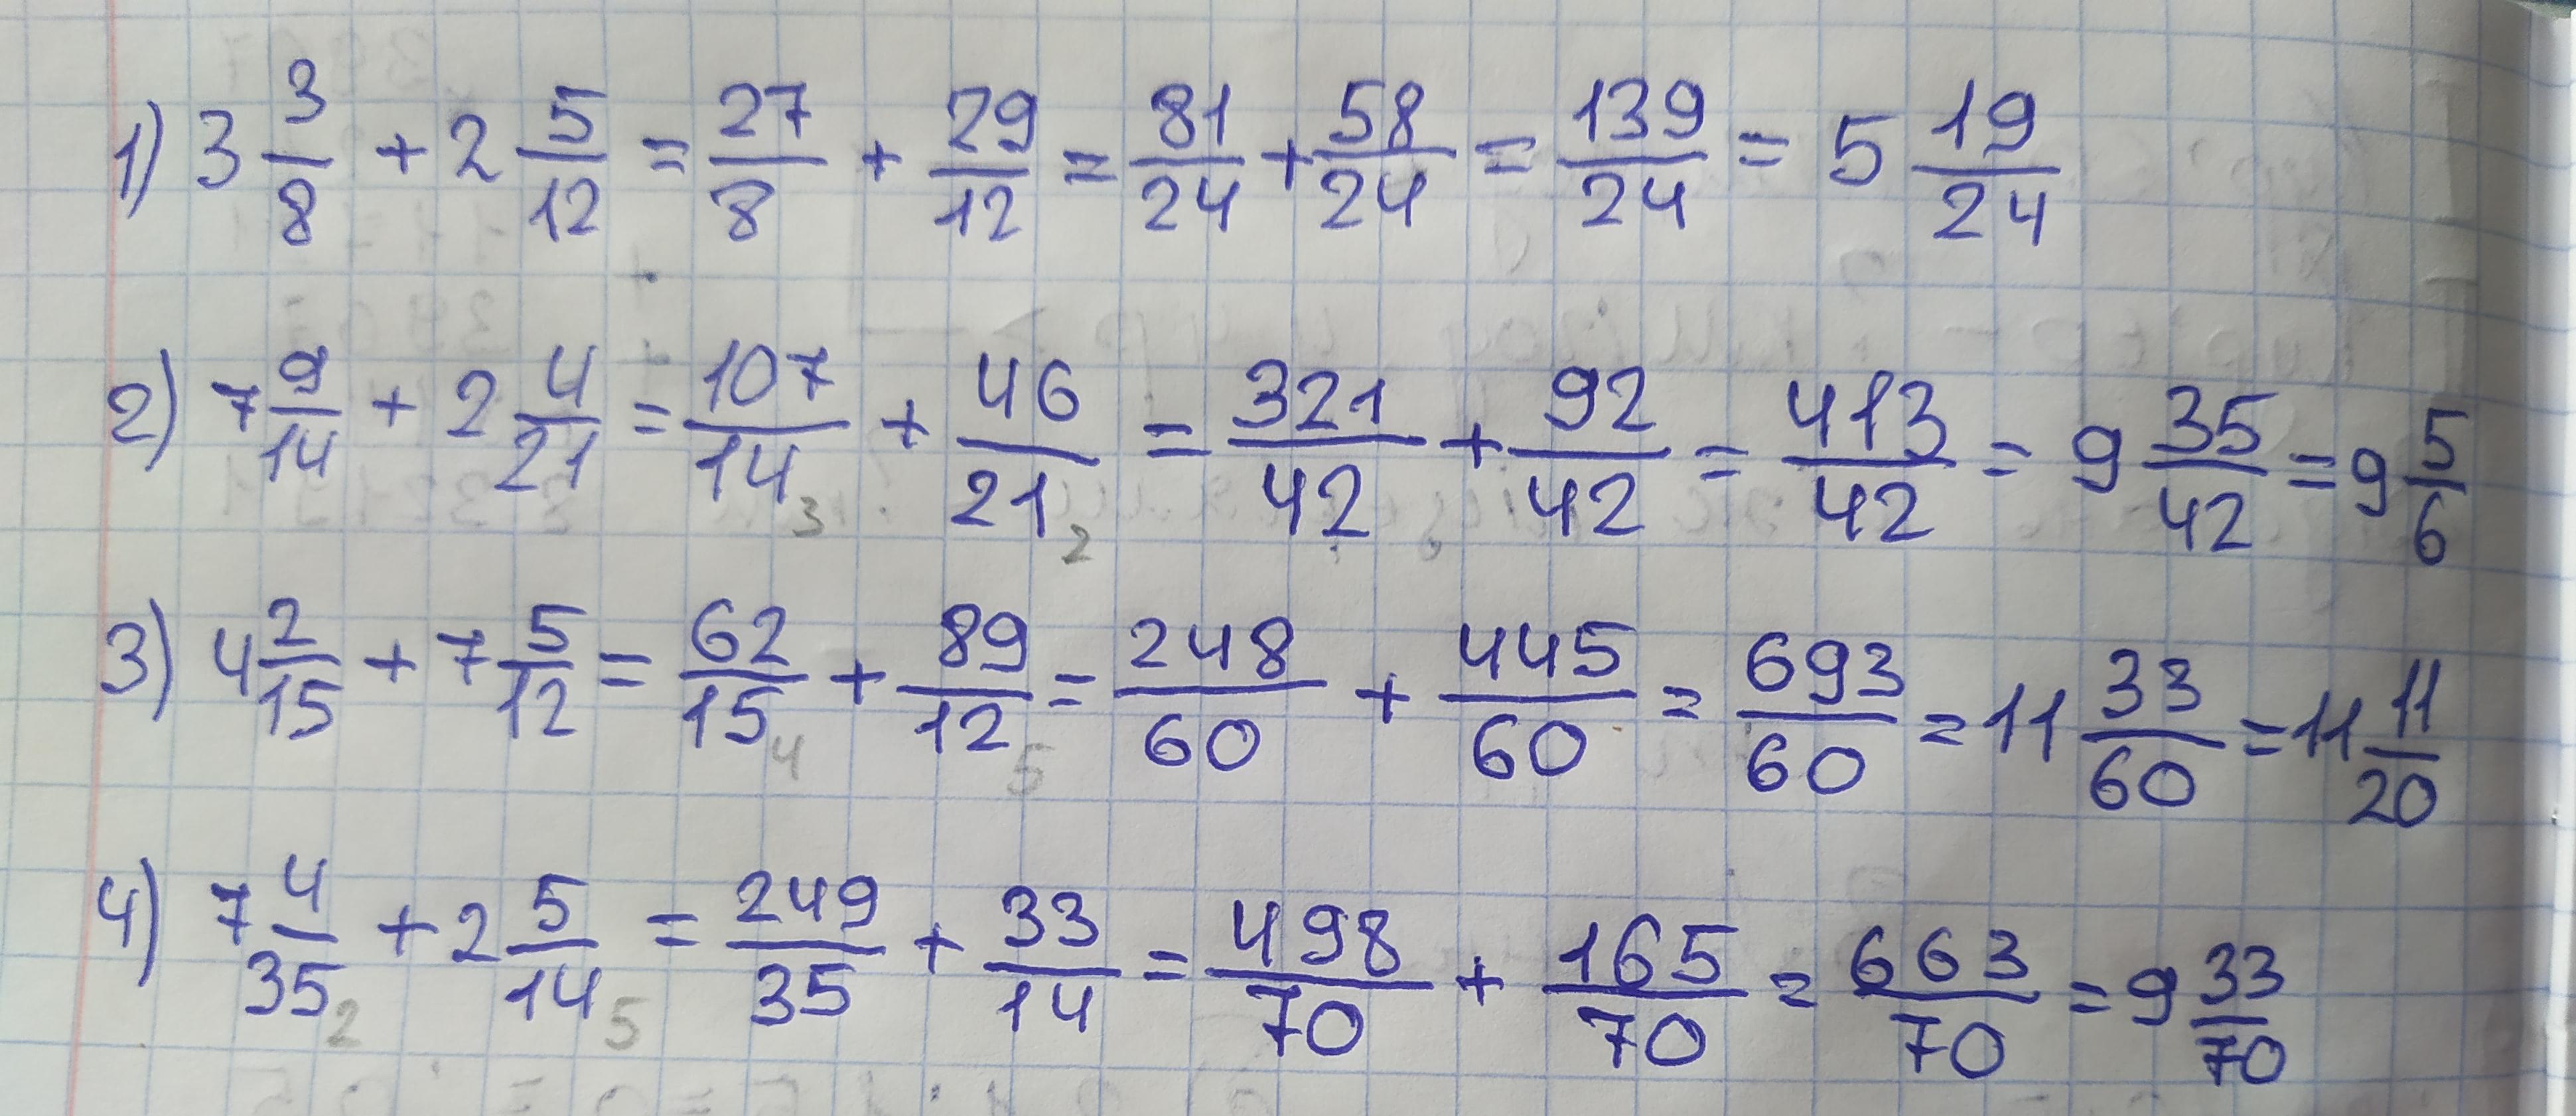 1) 3 3/8 + 2 5/12 = 27/8 + 29/12 = 81/24 + 58/24 = 139/24 = 5 19/24
2) 7 9/14 + 2 4/21 = 107/14 3 + 46/21 2 = 321/42 + 92/42 = 413/42 = 9 35/42 = 9 5/6
3) 4 2/15 + 7 5/12 = 62/15 4 + 89/12 5 = 248/60 + 445/60 = 693/60 = 11 33/60 = 11 11/20
4) 7 4/35 2 + 2 5/14 5 = 249/35 + 33/14 = 498/70 + 165/70 = 663/70 = 9 33/70